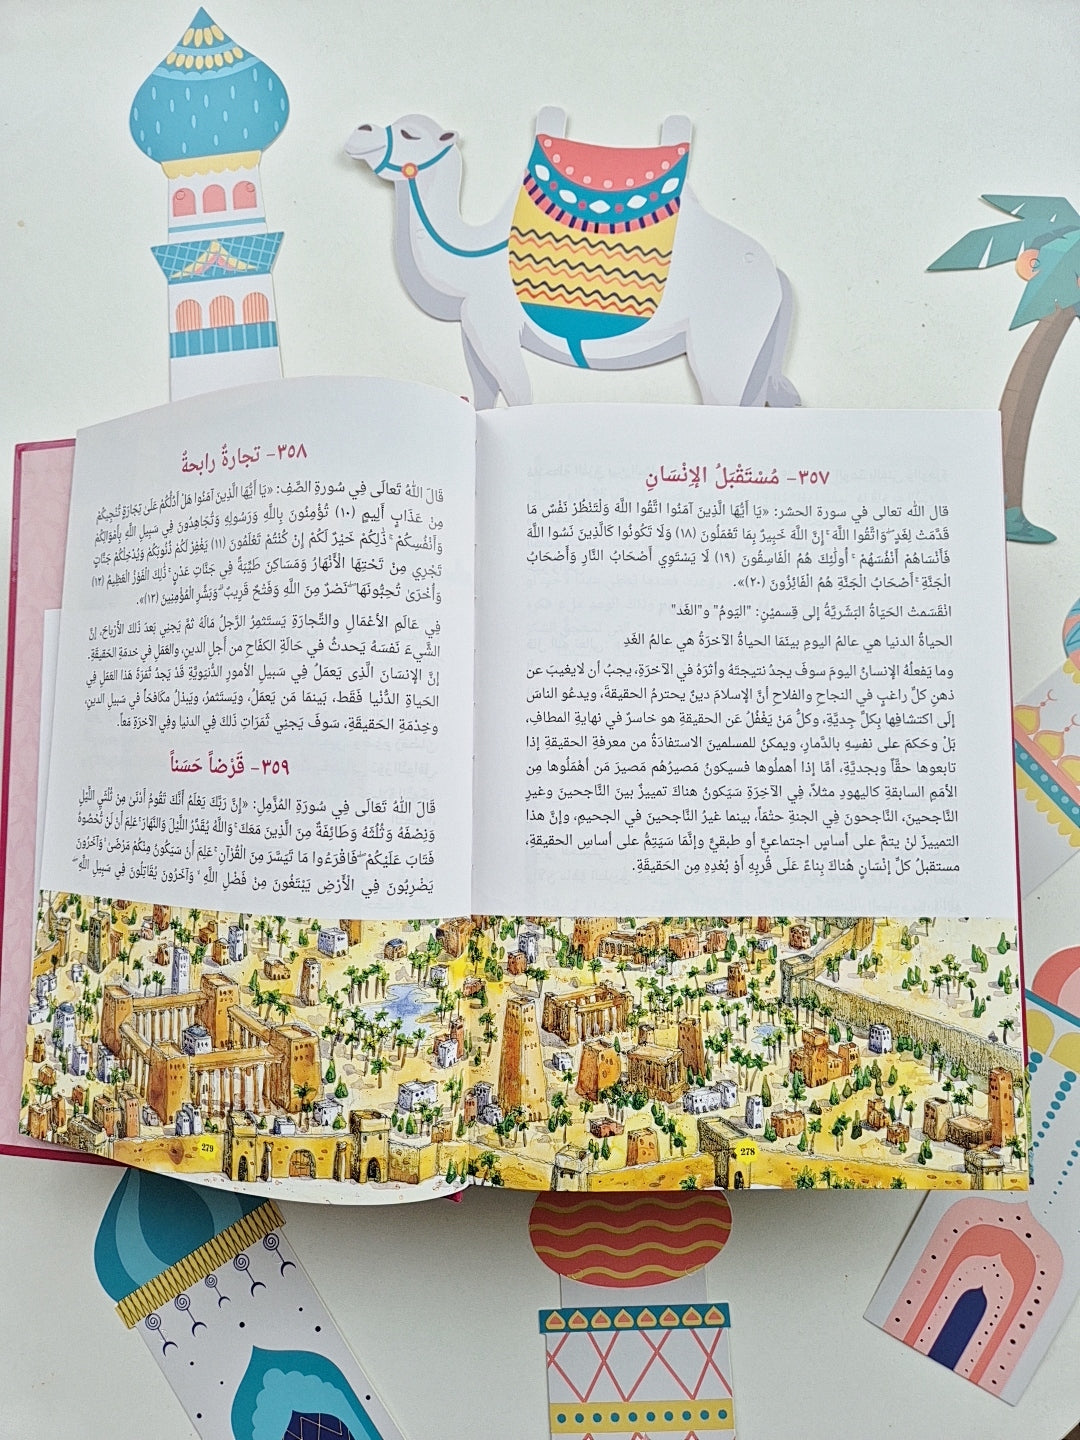 ٣٥٧- مُسْتَقْبَلُ الإِنْسَانِ
قال الله تعالى في سورة الحشر: «يَا أَيُّهَا الَّذِينَ آمَنُوا اتَّقُوا اللَّهَ وَلْتَنْظُرْ نَفْسٌ مَا
قَدَّمَتْ لِغَدٍ ۖ وَاتَّقُوا اللَّهَ ۚ إِنَّ اللَّهَ خَبِيرٌ بِمَا تَعْمَلُونَ (١٨) وَلَا تَكُونُوا كَالَّذِينَ نَسُوا اللَّهَ
فَأَنْسَاهُمْ أَنْفُسَهُمْ ۚ أُولَٰئِكَ هُمُ الْفَاسِقُونَ (١٩) لَا يَسْتَوِي أَصْحَابُ النَّارِ وَأَصْحَابُ
الْجَنَّةِ ۚ أَصْحَابُ الْجَنَّةِ هُمُ الْفَائِزُونَ (٢٠)».
انْقَسَمَتْ الحَيَاةُ البَشَرِيَّةُ إلى قِسميْنِ: "اليَومُ" و"الغَد"
الحياةُ الدنيا هي عالمُ اليومِ بينمَا الحياةُ الآخرَةُ هي عالمُ الغَدِ
وما يَفعلُهُ الإنسانُ اليومَ سوفَ يجدُ نتيجتَهُ وأثرَهُ في الآخرَةِ، يجبُ أن لايغيبَ عن
ذهنِ كلِّ راغبٍ في النجاحِ والفلاحِ أنَّ الإسلامَ دينٌ يحترمُ الحقيقةَ، ويدعُو الناسَ
إلَى اكتشافِها بِكلِّ جديَّةٍ، وكلُّ مَنْ يَغْفُلُ عَن الحقيقةِ هو خاسرٌ في نهايةِ المطافِ،
بَلْ وحَكمَ على نفسِهِ بالدَّمارِ، ويمكنُ للمسلمينَ الاستفادَةُ من معرفةِ الحقيقةِ إذا
تابعوها حقّاً وبجديَّةٍ، أمَّا إذا أهملُوها فسيكونُ مَصيرُهُم مَصيرَ مَن أهْمَلُوها مِن
الأممِ السابقةِ كاليهودِ مثلاً، فِي الآخِرَةِ سَيَكونُ هناكَ تمييزٌ بينَ النَّاجحينَ وغيرِ
النَّاجحينَ، النَّاجحونَ في الجنةِ حتمَاً، بينما غيرُ النَّاجحينَ في الجحيمِ، وإنَّ هذا
التمييزَ لنْ يتمَّ على أساسٍ اجتماعيٍّ أو طبقيٍّ وإنَّمَا سَيَتِمُّ على أساسِ الحقيقةِ،
مستقبلُ كلِّ إنْسَانٍ هُناكَ بِناءً عَلَى قُربِهِ أَوْ بُعْدِهِ مِن الحقيقَةِ.
278
٣٥٨- تجارةٌ رابحةٌ
قَالَ اللهُ تَعالَى فِي سُورةِ الصَّفِ: «يَا أَيُّهَا الَّذِينَ آمَنُوا هَلْ أَدُلُّكُمْ عَلَىٰ تِجَارَةٍ تُنْجِيكُمْ
مِنْ عَذَابٍ أَلِيمٍ (١٠) تُؤْمِنُونَ بِاللَّهِ وَرَسُولِهِ وَتُجَاهِدُونَ فِي سَبِيلِ اللَّهِ بِأَمْوَالِكُمْ
وَأَنْفُسِكُمْ ۚ ذَٰلِكُمْ خَيْرٌ لَكُمْ إِنْ كُنْتُمْ تَعْلَمُونَ (١١) يَغْفِرْ لَكُمْ ذُنُوبَكُمْ وَيُدْخِلْكُمْ جَنَّاتٍ
تَجْرِي مِنْ تَحْتِهَا الْأَنْهَارُ وَمَسَاكِنَ طَيِّبَةً فِي جَنَّاتِ عَدْنٍ ۚ ذَٰلِكَ الْفَوْزُ الْعَظِيمُ (١٢)
وَأُخْرَىٰ تُحِبُّونَهَا ۖ نَصْرٌ مِنَ اللَّهِ وَفَتْحٌ قَرِيبٌ ۗ وَبَشِّرِ الْمُؤْمِنِينَ (١٣)».
فِي عَالَمِ الأعْمَالِ والتِّجارَةِ يَستَثمِرُ الرَّجلُ مَالَهُ ثمَّ يَجنِي بَعدَ ذَلكَ الأَرباحَ، إنَّ
الشَّيءَ نَفسَهُ يَحدثُ في حَالَةِ الكفَاحِ من أجلِ الدينِ، والعَمَلِ في خدمَةِ الحَقيقَةِ.
إنَّ الإنسَانَ الَّذِى يَعمَلُ فِي سَبيلِ الأمورِ الدُّنيَويَّةِ قَدْ يَجدُ ثَمَرَةَ هَذا العَمَلِ فِي
الحَياةِ الدُّنْيا فَقَط، بَينمَا مَن يَعمَلُ، ويَستَثمرُ، ويَبذلُ مكَافحَاً في سَبيلِ الدينِ،
وخِدْمَةِ الحَقيقَةِ، سَوفَ يَجنِي ثَمَرَاتِ ذَلكَ فِي الدنيا وفِي الآخرَةِ مَعاً.
٣٥٩- قَرْضاً حَسَناً
قَالَ اللهُ تَعَالَى فِي سُورَةِ المُزَّمِلِ: «إِنَّ رَبَّكَ يَعْلَمُ أَنَّكَ تَقُومُ أَدْنَىٰ مِنْ ثُلُثَيِ اللَّيْلِ
وَنِصْفَهُ وَثُلُثَهُ وَطَائِفَةٌ مِنَ الَّذِينَ مَعَكَ ۚ وَاللَّهُ يُقَدِّرُ اللَّيْلَ وَالنَّهَارَ ۚ عَلِمَ أَنْ لَنْ تُحْصُوهُ
فَتَابَ عَلَيْكُمْ ۖ فَاقْرَءُوا مَا تَيَسَّرَ مِنَ الْقُرْآنِ ۚ عَلِمَ أَنْ سَيَكُونُ مِنْكُمْ مَرْضَىٰ ۙ وَآخَرُونَ
يَضْرِبُونَ فِي الْأَرْضِ يَبْتَغُونَ مِنْ فَضْلِ اللَّهِ ۙ وَآخَرُونَ يُقَاتِلُونَ فِي سَبِيلِ اللَّهِ ۖ
279